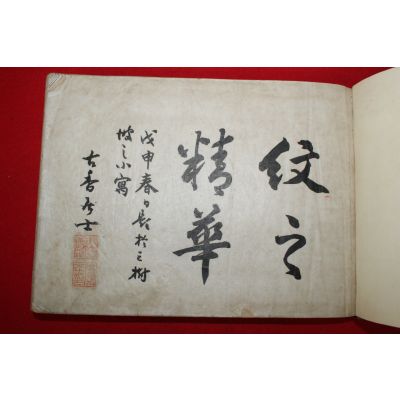 紋之
精華
戊申春日於之樹
坡之小寓
古香居士